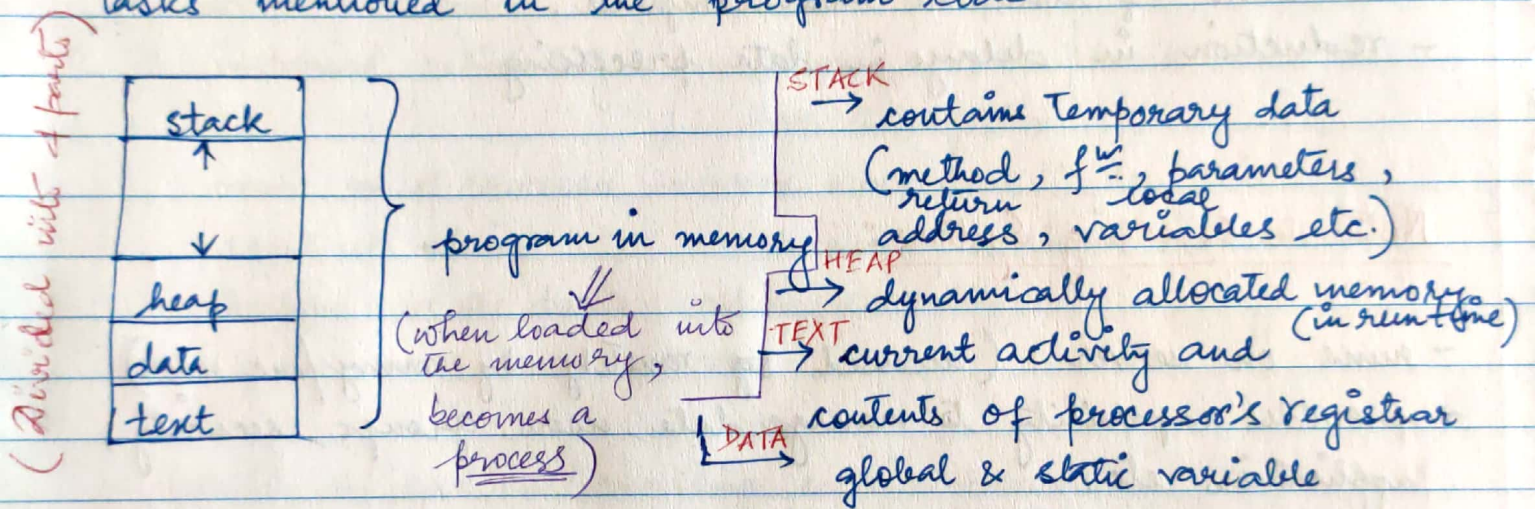 tasks mentioned in the program code
(Divided into 4 parts)
stack
heap
data
text
program in memory
(when loaded into
the memory,
becomes a
process)
STACK
→ contains Temporary data
(method, fⁿ, parameters,
return address, local variables etc.)
HEAP
→ dynamically allocated memory
(in run time)
TEXT
→ current activity and
contents of processor's registrar
DATA
global & static variable